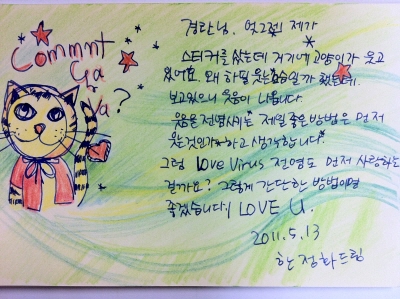 Commnt
Ça
Va?
경란님, 엊그제 제가
스티커를 샀는데 거기에 고양이가 웃고
있어요. 왜 하필 웃는 모습일까 했는데,
보고있으니 웃음이 나옵니다.
웃음을 전염시키는 제일 좋은 방법은 먼저
웃는것인가~하고 생각합니다.
그럼 Love Virus 전염도 먼저 사랑하는
걸까요? 그렇게 간단한 방법이면
좋겠습니다. I LOVE U.
2011.5.13
한정화드림